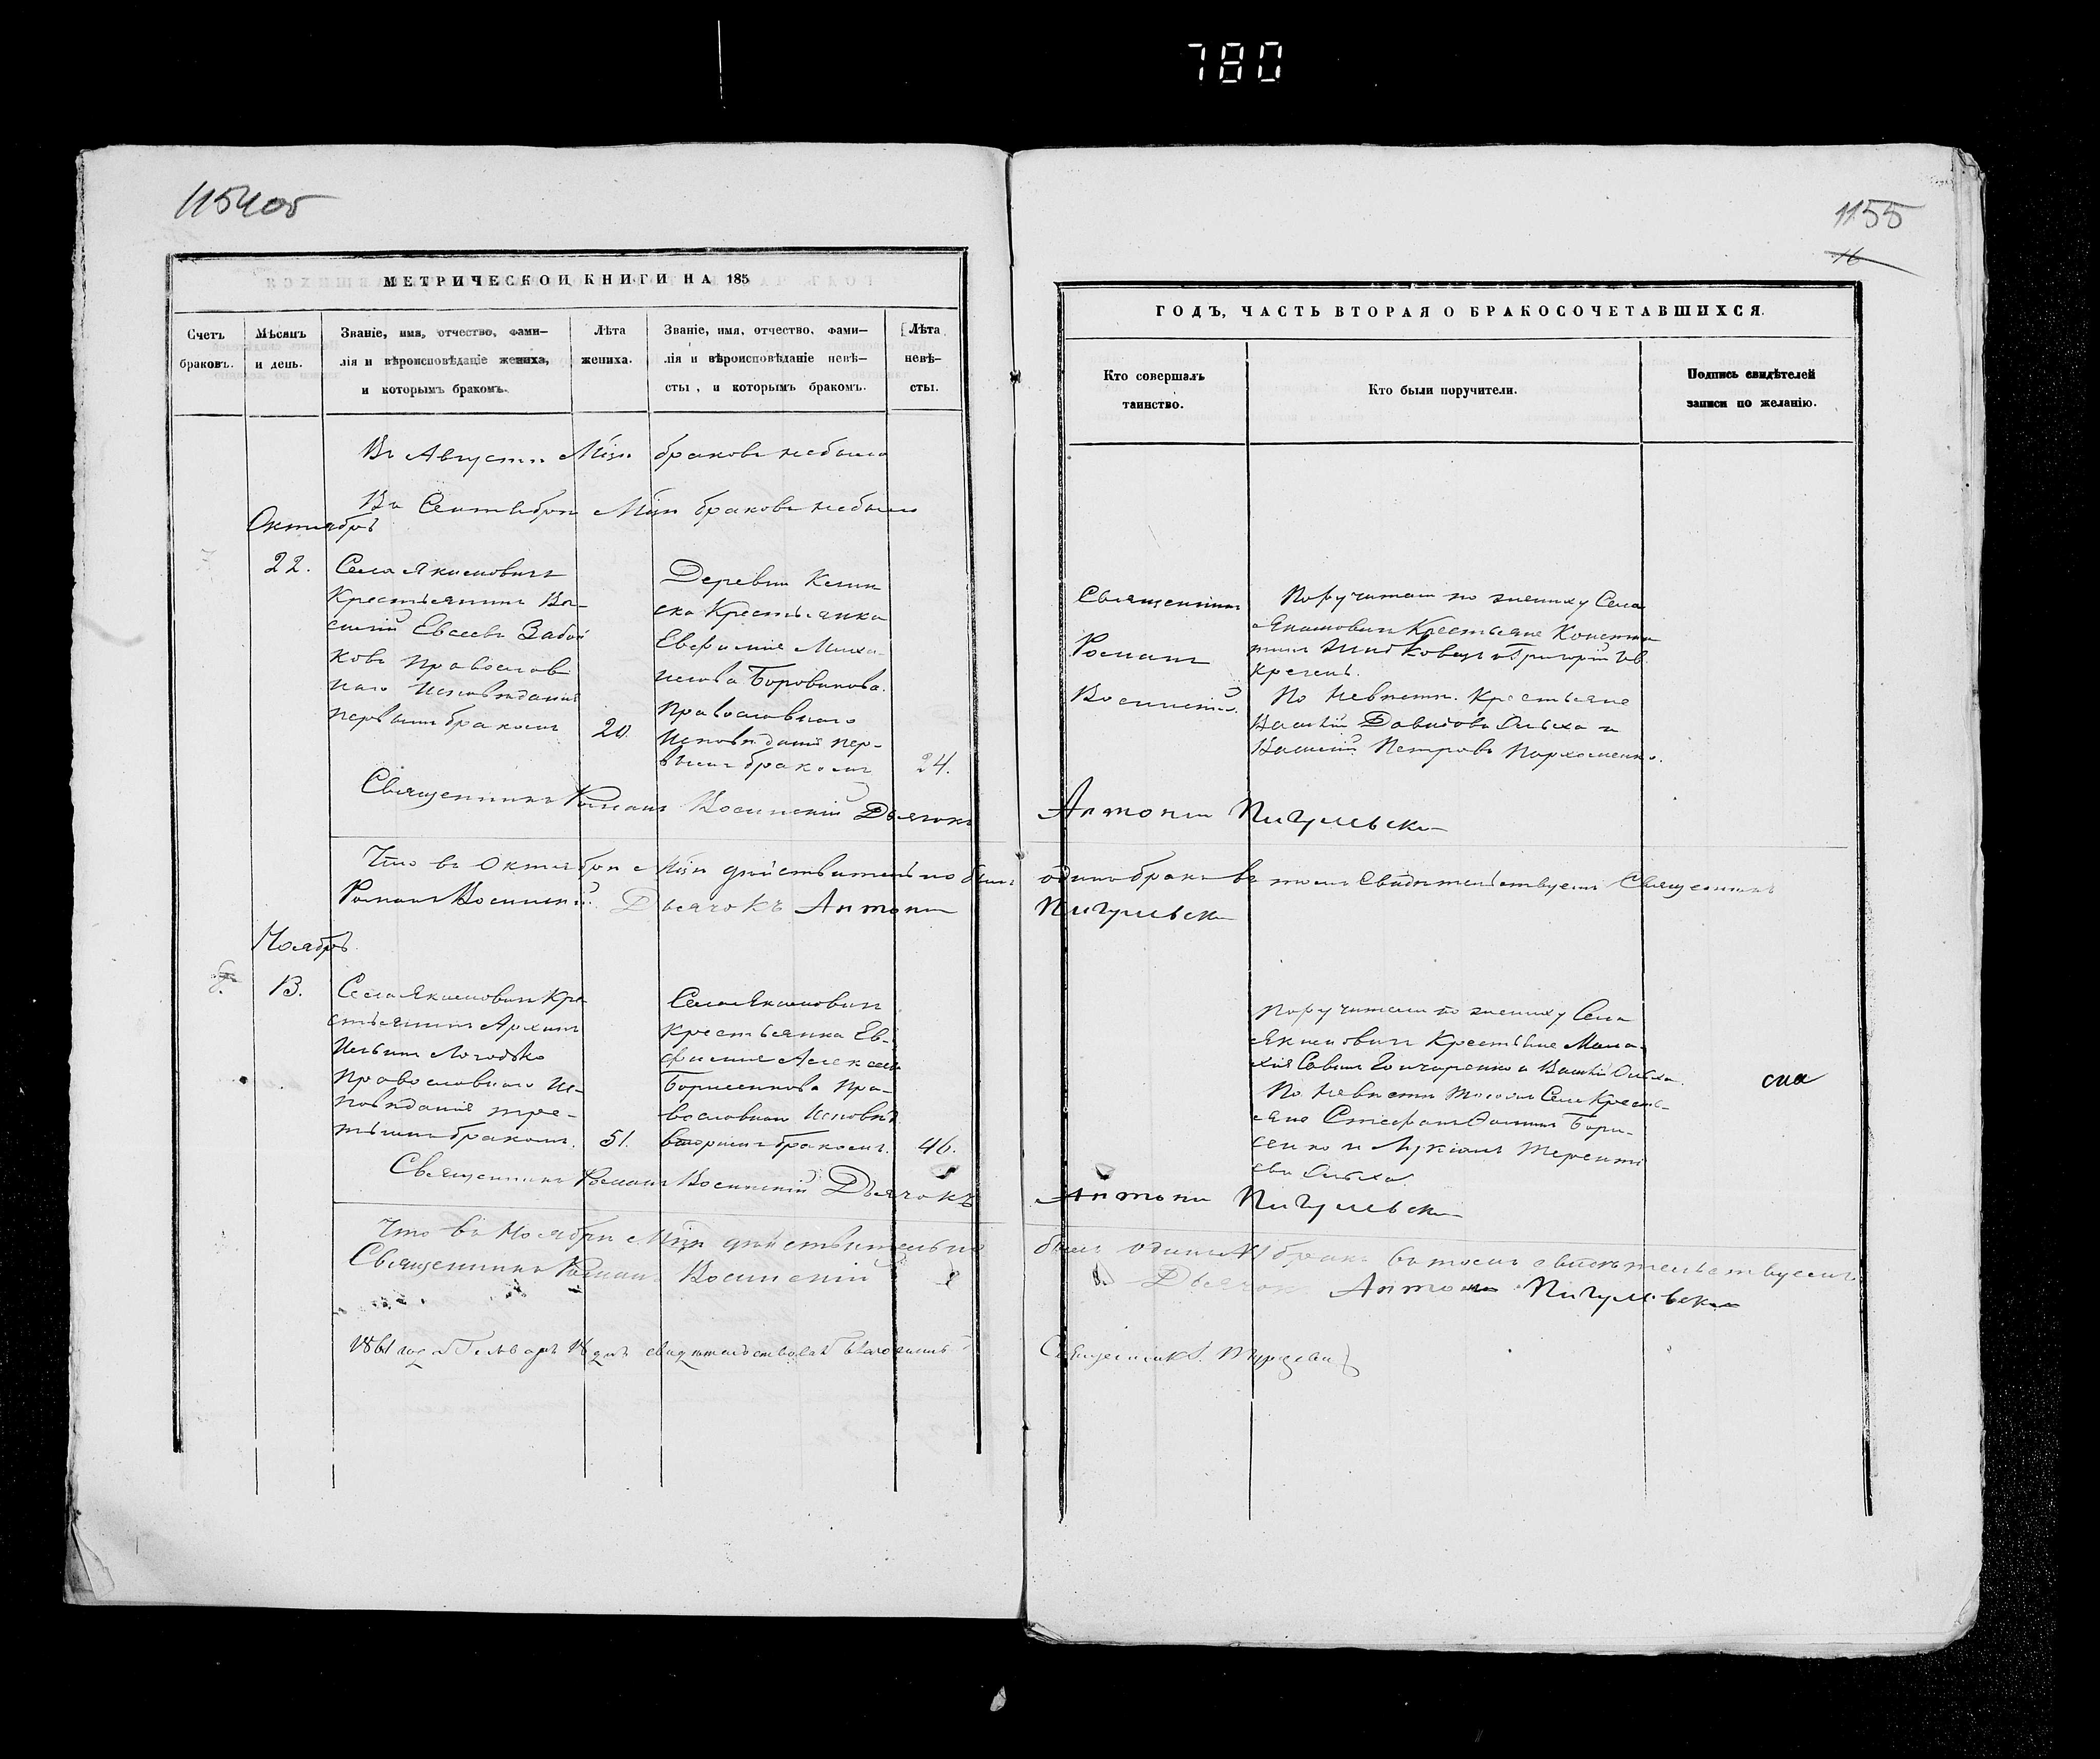 780
1154об
1155
16
МЕТРИЧЕСКОЙ КНИГИ НА 185
ГОДЪ, ЧАСТЬ ВТОРАЯ О БРАКОСОЧЕТАВШИХСЯ.
Счетъ
браковъ.
Мѣсяцъ
и день.
Званіе, имя, отчество, фами-
лія и вѣроисповѣданіе жениха,
и которымъ бракомъ.
Лѣта
жениха.
Званіе, имя, отчество, фами-
лія и вѣроисповѣданіе невѣ-
сты, и которымъ бракомъ.
Лѣта
невѣ-
сты.
Кто совершалъ
таинство.
Кто были поручители.
Подпись свидѣтелей
записи по желанію.
Въ Августѣ Мцѣ браковъ небыло
Въ Сентябрѣ Мцѣ браковъ небыло
Октябрь
22.
Села Якимовичъ
Крестьянинъ Ва-
силій Евсеевъ
ковъ Православ
наго Исповѣданія
первымъ бракомъ
20.
Деревни
Крестьянка
Евфимія Миха-
илова Боровикова.
Православнаго
Исповѣданія пер-
вымъ бракомъ
24.
Священникъ
Романъ
Восинскій.
Поручители по жениху Села
Якимовичъ Крестьяне Конста
нтинъ Григорій
По невѣстѣ Крестьяне
Василій Давидовъ Ольха и
Василій Петровъ Пархоменко.
Священникъ Романъ Восинскій Дьячокъ Антоній
Что въ Октябрѣ Мцѣ дѣйствительно былъ одинъ бракъ въ томъ свидѣтельствуемъ Священникъ
Романъ Восинскій Дьячокъ Антоній
Ноябрь
8.
13.
Села Якимовичъ Кре
стьянинъ Архипъ
Ильинъ
Православнаго Ис-
повѣданія тре-
тьимъ бракомъ.
51.
Села Якимовичъ
Крестьянка Ев-
фимія Алексѣева
Борисенкова Пра-
вославнаго Исповѣд
вторымъ бракомъ.
46.
Поручители по жениху Села
Якимовичъ Крестьяне Мала-
хія Савинъ Гончаренко и Василій Ольха.
По невѣстѣ Села Кресть-
яне Стефанъ Бори-
сенко и Лукіанъ Теренті
евъ Ольха.
Священникъ Романъ Восинскій Дьячокъ Антоній
Что въ Ноябрѣ Мцѣ дѣйствительно былъ одинъ бракъ въ томъ свидѣтельствуемъ
Священникъ Романъ Восинскій Дьячокъ Антоній
1861 года Генваря 18 дня свидѣтельствовалъ Благочинный
Священникъ